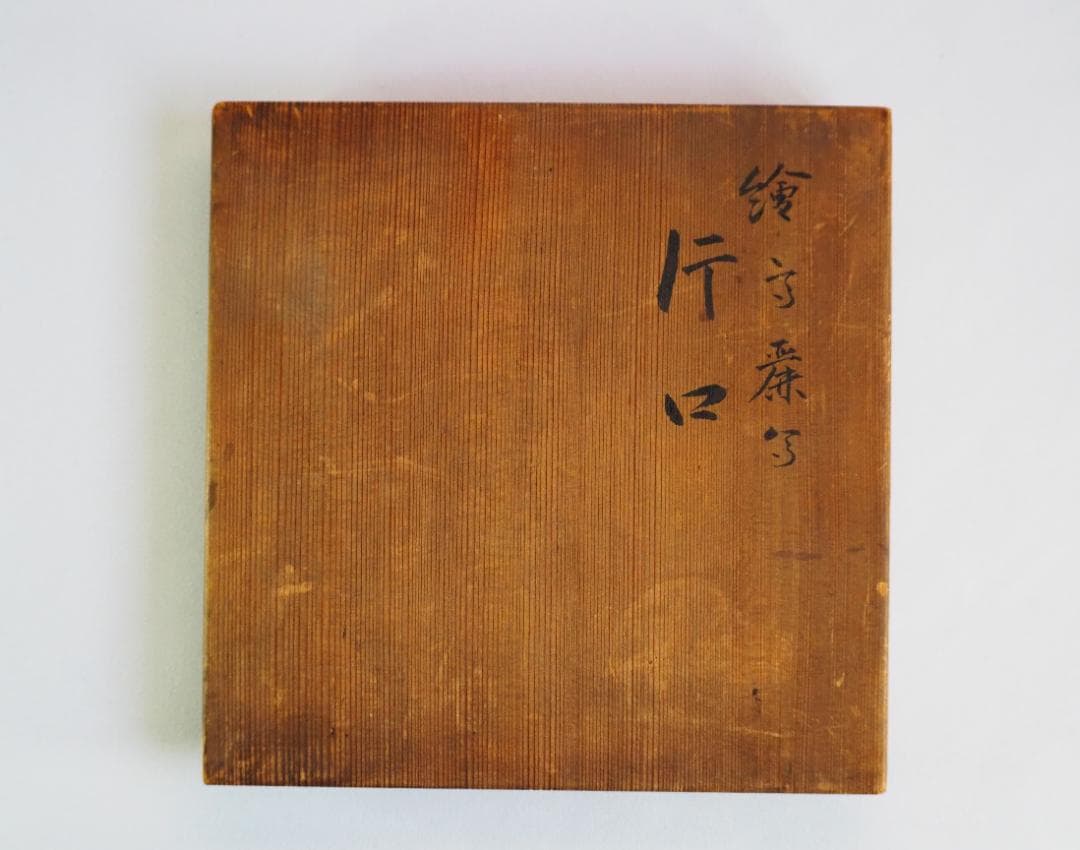 繪高麗写
片口